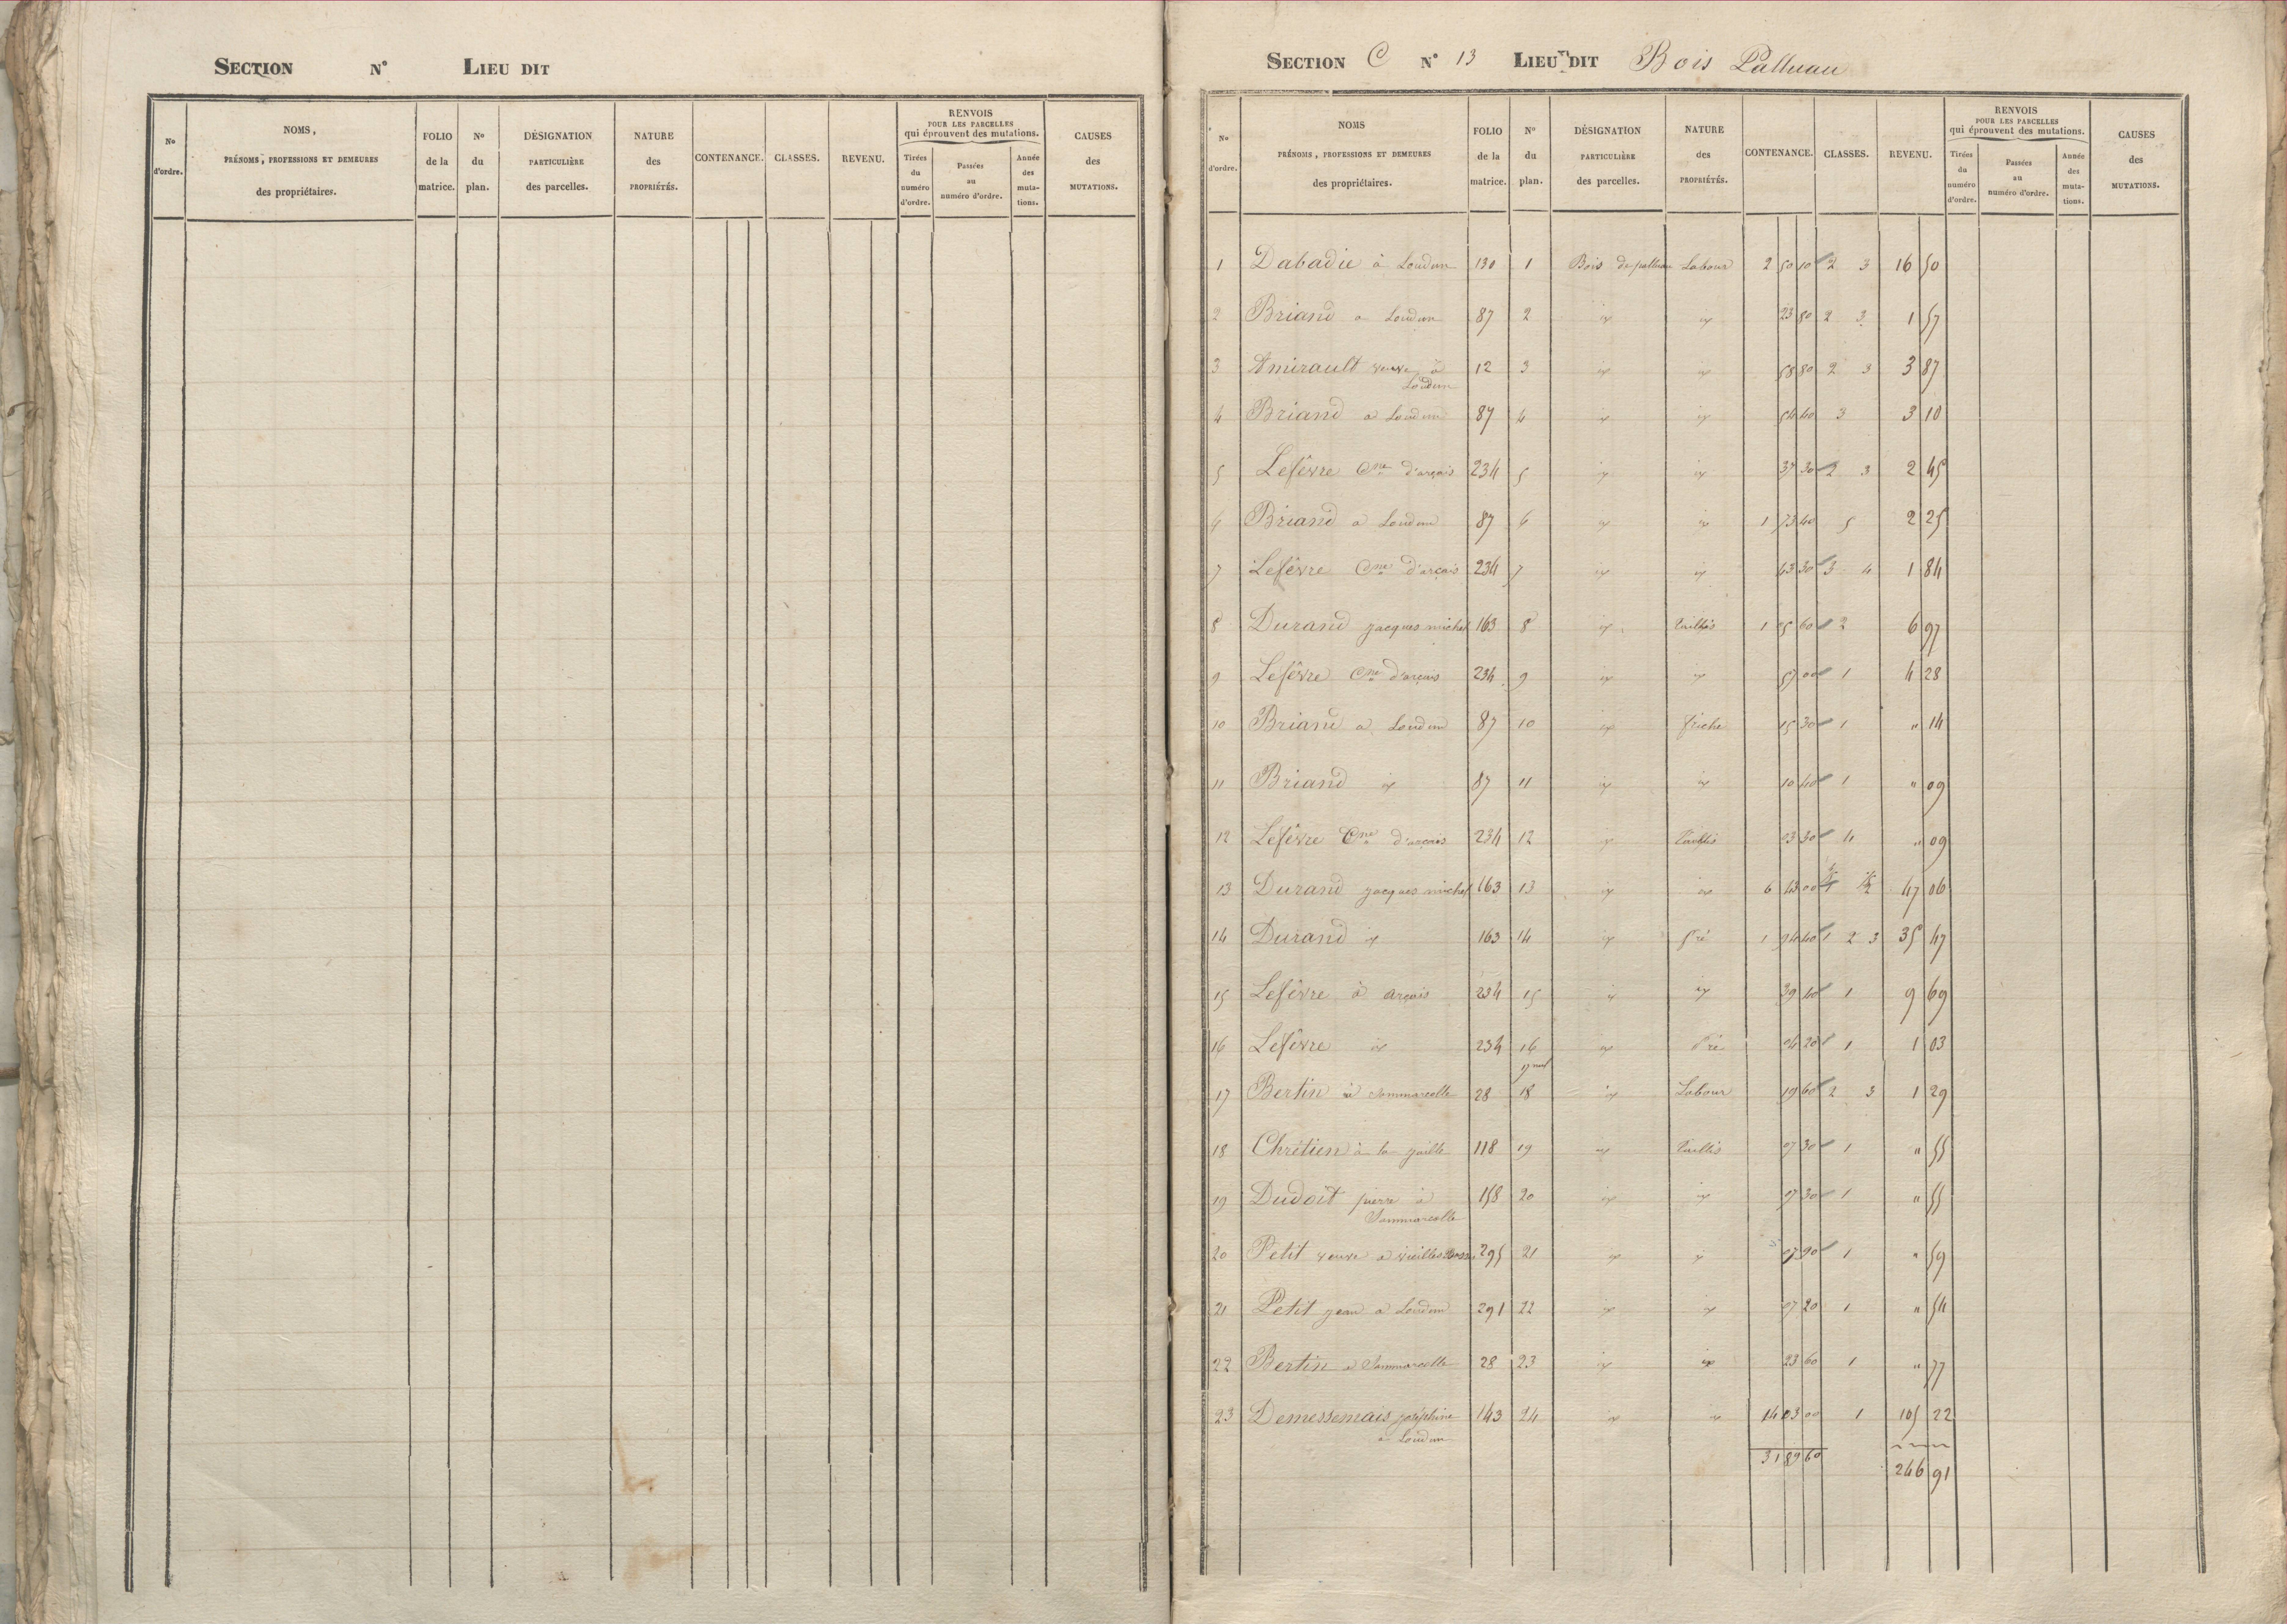 SECTION N° LIEU DIT
No d'ordre. NOMS, PRÉNOMS, PROFESSIONS ET DEMEURES des propriétaires. FOLIO de la matrice. No du plan. DÉSIGNATION PARTICULIÈRE des parcelles. NATURE des PROPRIÉTÉS. CONTENANCE. CLASSES. REVENU. RENVOIS POUR LES PARCELLES qui éprouvent des mutations. Tirées du numéro d'ordre. Passées au numéro d'ordre. Année des muta-tions. CAUSES des MUTATIONS.
SECTION C N° 13 LIEU DIT Bois Palluau
No d'ordre. NOMS PRÉNOMS, PROFESSIONS ET DEMEURES des propriétaires. FOLIO de la matrice. No du plan. DÉSIGNATION PARTICULIÈRE des parcelles. NATURE DES PROPRIÉTÉS. CONTENANCE. CLASSES. REVENU. RENVOIS POUR LES PARCELLES qui éprouvent des mutations. Tirées du numéro d'ordre. Passées au numéro d'ordre. Année des muta-tions. CAUSES des MUTATIONS.
1 Dabadie à Loudun 130 1 Bois de palluau Labour 2 50 10 2 3 16 50
2 Briand a Loudun 87 2 id id 23 80 2 3 1 57
3 Amirault veuve à Loudun 12 3 id id 58 80 2 3 3 87
4 Briand a Loudun 87 4 id id 54 40 3 3 10
5 Lefêvre Cne d'arçais 234 5 id id 37 30 2 3 2 45
6 Briand a Loudun 87 6 id id 1 73 40 5 2 25
7 Lefêvre Cne d'arçais 234 7 id id 43 30 3 4 1 84
8 Durand jacques michel 163 8 id Taillis 1 05 60 2 6 97
9 Lefêvre Cne d'arçais 234 9 id id 57 00 1 4 28
10 Briand a Loudun 87 10 id friche 15 30 1 " 14
11 Briand id 87 11 id id 10 40 1 " 09
12 Lefêvre Cne d'arçais 234 12 id Taillis 03 30 4 " 09
13 Durand jacques michel 163 13 id id 6 43 00 47 06
14 Durand id 163 14 id Pré 1 94 40 1 2 3 35 47
15 Lefêvre à arçais 234 15 id id 39 40 1 9 69
16 Lefêvre id 234 16 id Pré 04 20 1 1 03
17 Bertin à Sammarcolle 28 18 id Labour 19 60 2 3 1 29
18 Chrétien à la 118 19 id Taillis 07 30 1 " 55
19 Dudoit pierre à Sammarcolle 158 20 id id 07 30 1 " 55
20 Petit veuve a 295 21 id id 07 90 1 " 59
21 Petit jean a Loudun 291 22 id id 07 20 1 " 54
22 Bertin a Sammarcolle 28 23 id id 23 60 1 " 77
23 Demessemais joséphine a Loudun 143 24 id id 14 03 00 1 105 22
31 89 60 246 91